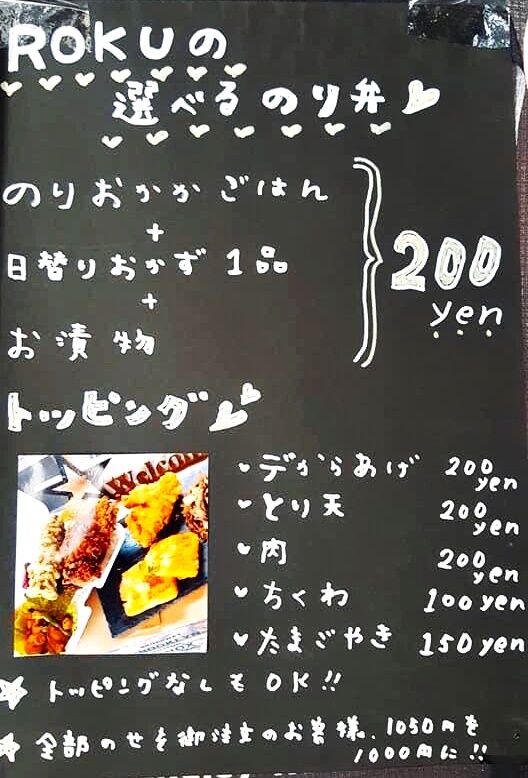 ROKUの
選べるのり弁
のりおかかごはん
+
日替りおかず 1品
+
お漬物
200
yen
トッピング
Welcom
デからあげ 200 yen
とり天 200 yen
肉 200 yen
ちくわ 100 yen
たまごやき 150 yen
トッピングなしもOK!!
全部のせを御注文のお客様、1050円を
1000円に!!